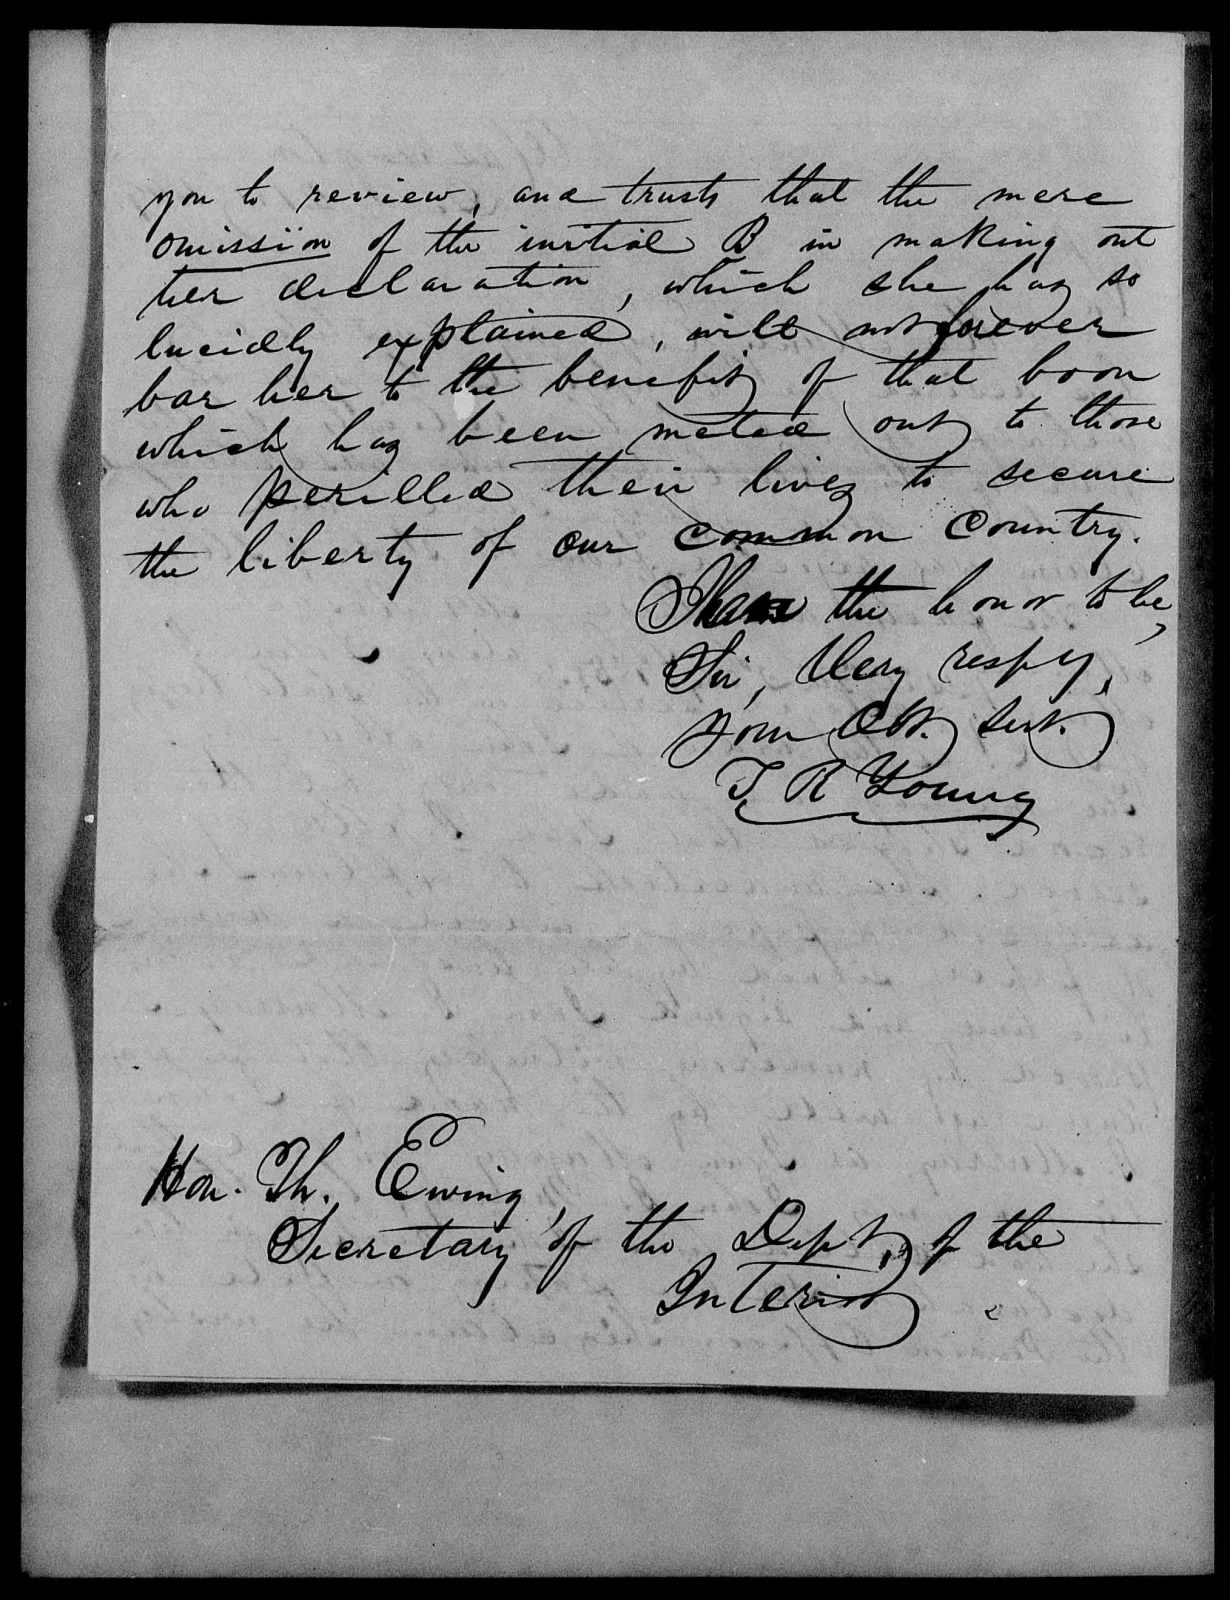 you to review, and trusts that the mere
omission of the initial B in making out
her declaration, which she has so
lucidly explained, will not forever
bar her to the benefits of that boon
which has been meted out to those
who perilled their lives to secure
the liberty of our common Country.
I have the honor to be,
Sir, Very respy,
your Obt. Servt.
T. R Young
Hon. Th. Ewing,
Secretary of the Dept, of the
Interior